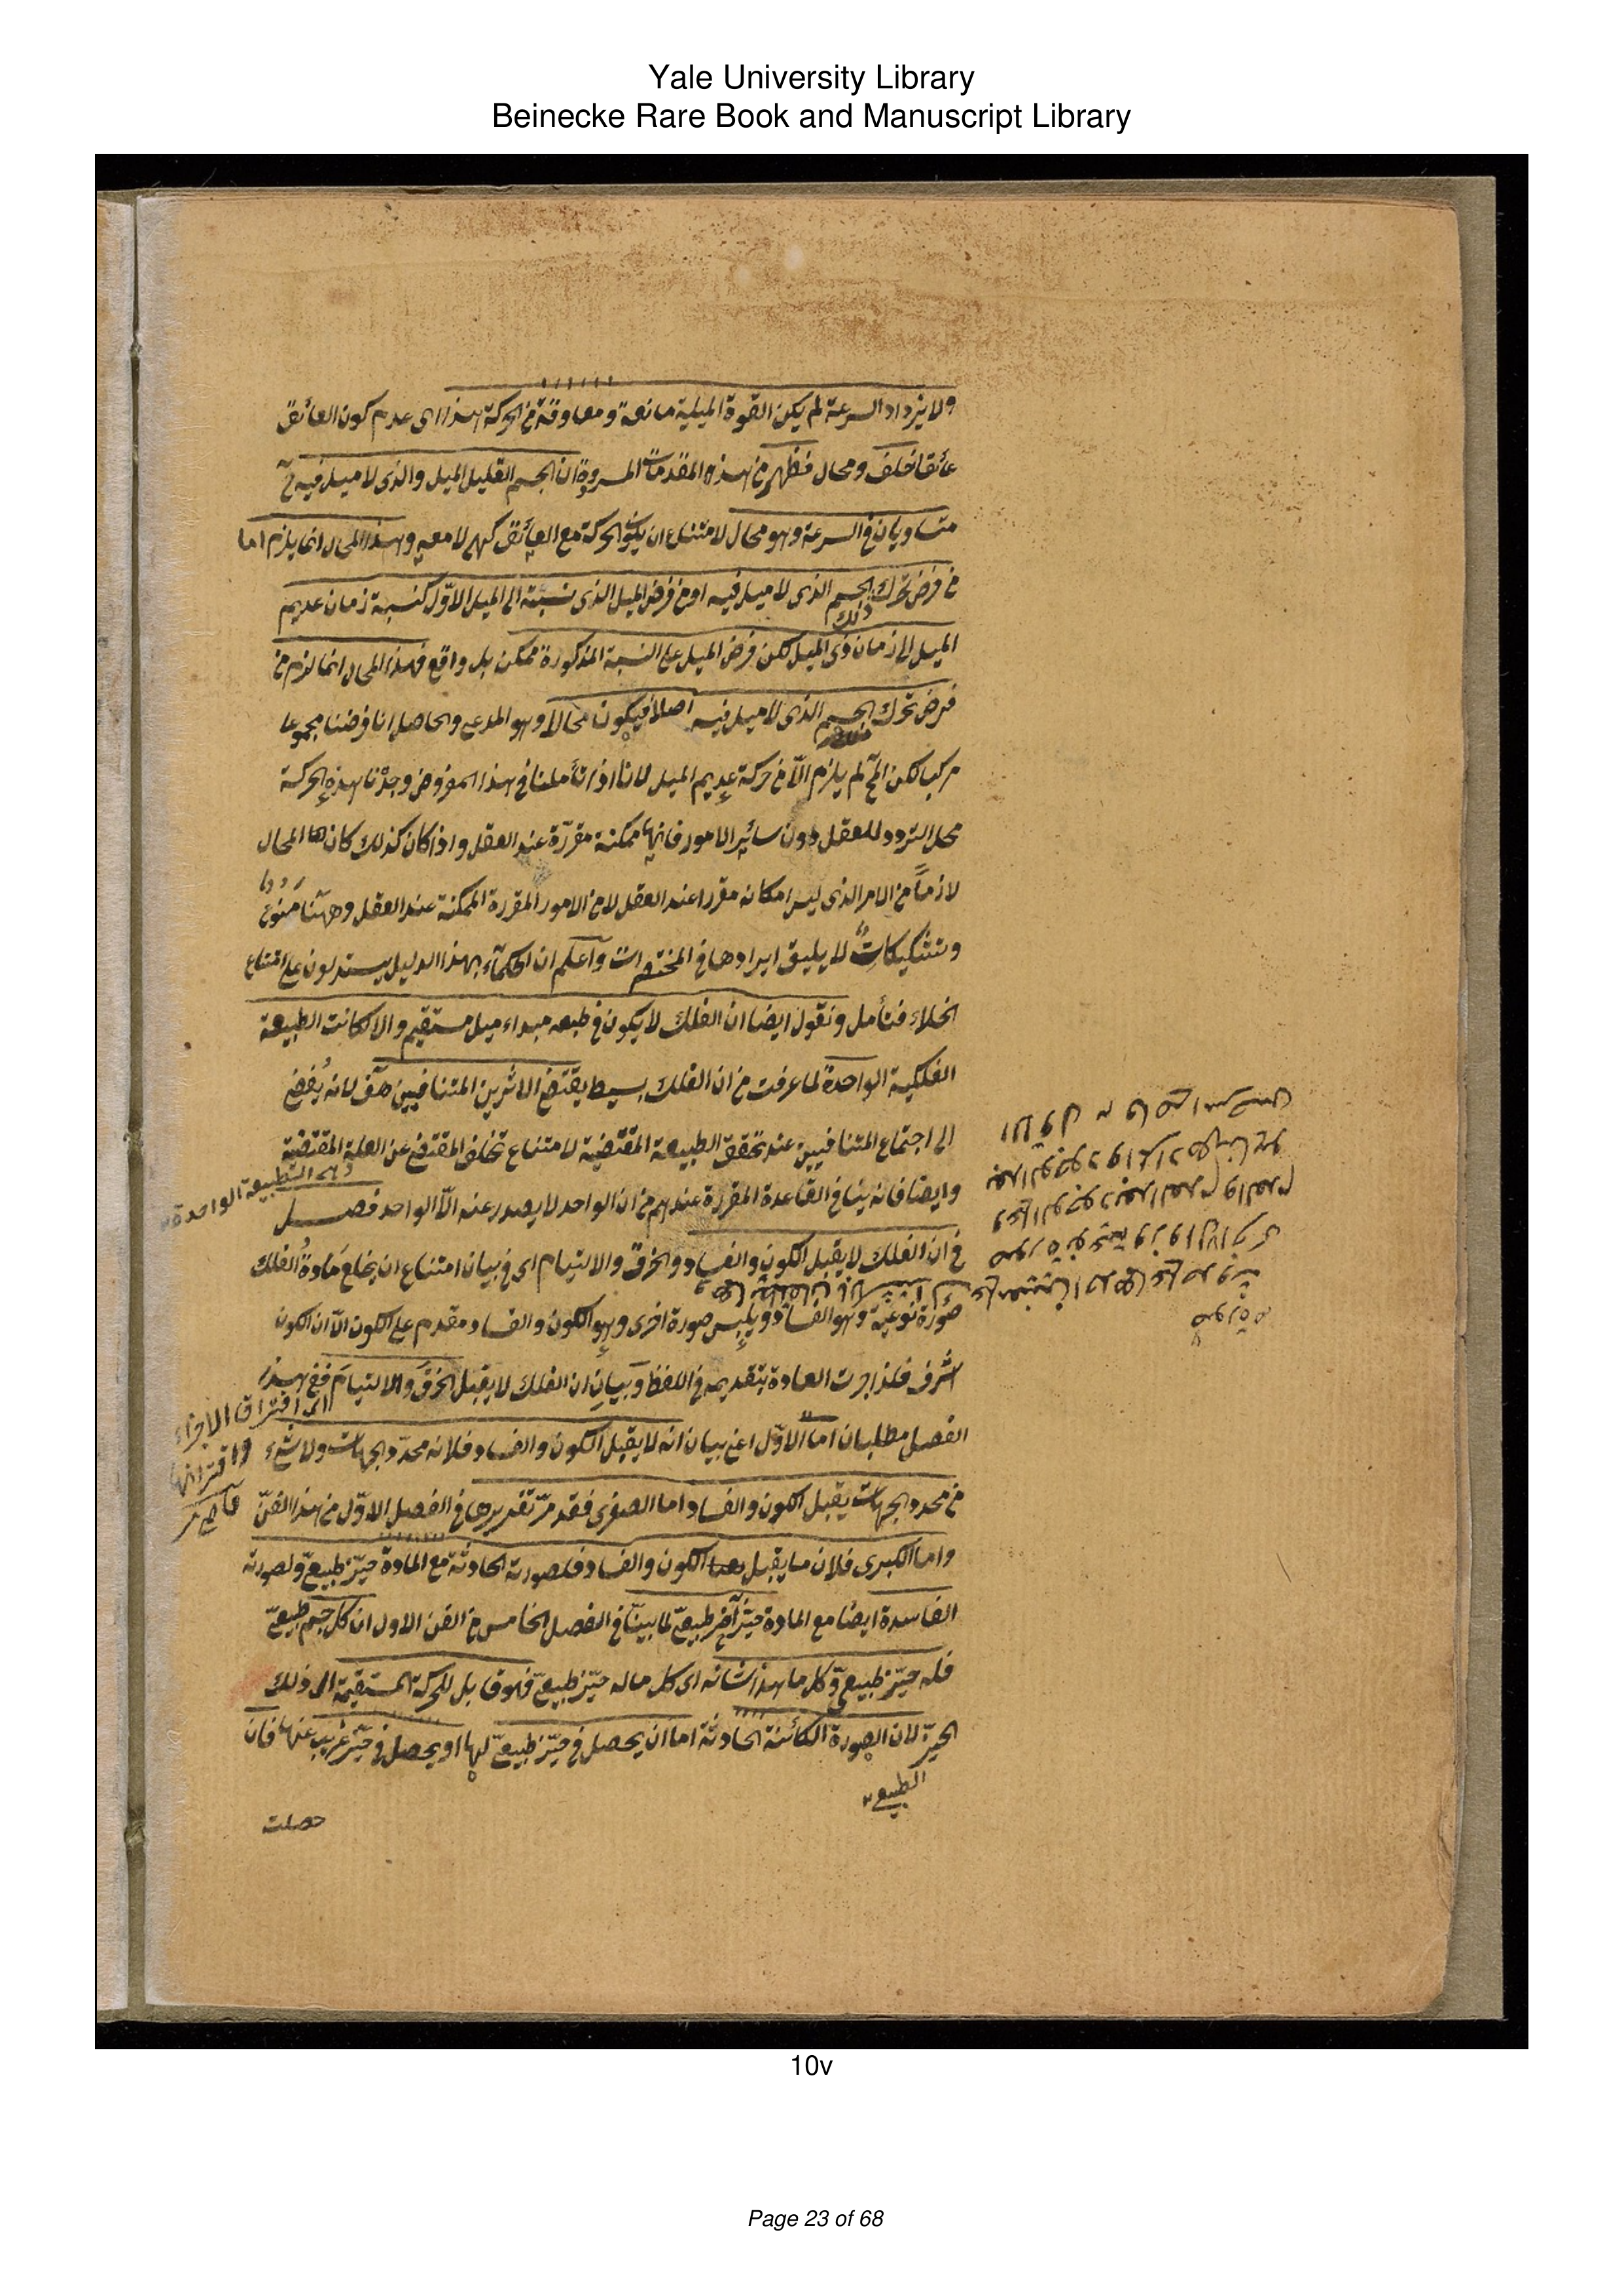 Yale University Library
Beinecke Rare Book and Manuscript Library
ولا يزداد السرعة لم يكن القوة الميلية مانعة ومعاوقة من الحركة هذا اى عدم كون العائق
عائقا خلف ومحال فظهر من هذه المقدمات المسرودة ان الجسم القليل الميل والذى لا ميل فيه
متساويان فى السرعة وهو محال لامتناع ان يكون الحركة مع العائق كهى لا معه وهذا المحال انما يلزم اما
من فرض تحرك الجسم الذى لا ميل فيه او من فرض الميل الذى نسبته الى الميل الاول كنسبة زمان عديم
الميل الى زمان ذى الميل لكن فرض الميل على النسبة المذكورة ممكن بل واقع فهذا المحال انما لزم من
فرض تحرك الجسم الذى لا ميل فيه اصلا فيكون محالا وهو المدعى والحاصل انا فرضنا مجموعا
مركب لكن المح لم يلزم الا من حركة عديم الميل لانا اذا تأملنا فى هذا المفروض وجدنا هذه الحركة
محل التردد للعقل دون سائر الامور فانها ممكنة مقررة عند العقل واذا كان كذلك كان هذا المحال
لازما من الامر الذى ليس امكانه مقررا عند العقل لا من الامور المقررة الممكنة عند العقل وههنا منوع
وتشكيكات لا يليق ايرادها فى المختصرات واعلم ان الحكماء بهذا الدليل يستدلون على امتناع
الخلاء فتأمل ونقول ايضا ان الفلك لا يكون فى طبعه مبداء ميل مستقيم والا لكانت الطبيعة
الفلكية الواحدة لما عرفت من ان الفلك بسيط يقتضى الاثرين المتنافيين هف لانه يفضى
الى اجتماع المتنافيين عند تحقق الطبيعة المقتضية لامتناع تخلف المقتضى عن العلة المقتضية
وهى الطبيعة الواحدة
وايضا فانه ينافى القاعدة المقررة عندهم من ان الواحد لا يصدر عنه الا الواحد فصل
فى ان الفلك لا يقبل الكون والفساد والخرق والالتيام اى فى بيان امتناع ان يخلع مادة الفلك
صورة نوعية وهو الفساد ويلبس صورة اخرى وهو الكون والفساد مقدم على الكون الا ان الكون
اشرف فلذا جرت العادة بتقديمه فى اللفظ وبيان ان الفلك لا يقبل الخرق والالتيام ففى هذا
اى افتراق الاجزاء
واقترانها
الفصل مطلبان اما الاول اعنى بيان انه لا يقبل الكون والفساد فلانه محدد الجهات ولا شىء
من محدد الجهات يقبل الكون والفساد اما الصغرى فقد مر تقديرها فى الفصل الاول من هذا الفن
واما الكبرى فلان ما يقبل الكون والفساد فلصورته الحادثة مع المادة حيز طبيعى ولصورته
الفاسدة ايضا مع المادة حيز آخر طبيعى لما بينا فى الفصل الخامس من الفن الاول ان كل جسم طبيعى
فله حيز طبيعى وكل ما هذا شانه اى كل ماله حيز طبيعى فهو قابل للحركة المستقيمة الى ذلك
الحيز لان الصورة الكائنة الحادثة اما ان يحصل فى حيز طبيعى لها او يحصل فى حيز غريب عنها فان
الطبيعى
حصلت
10v
Page 23 of 68